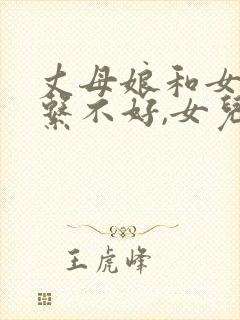 丈母娘和女
繫不好,女兒
王虎峰